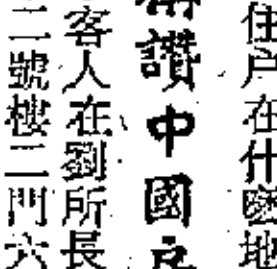 住户在什麽地
讚中國
客人在劉所長
二號樓二門六